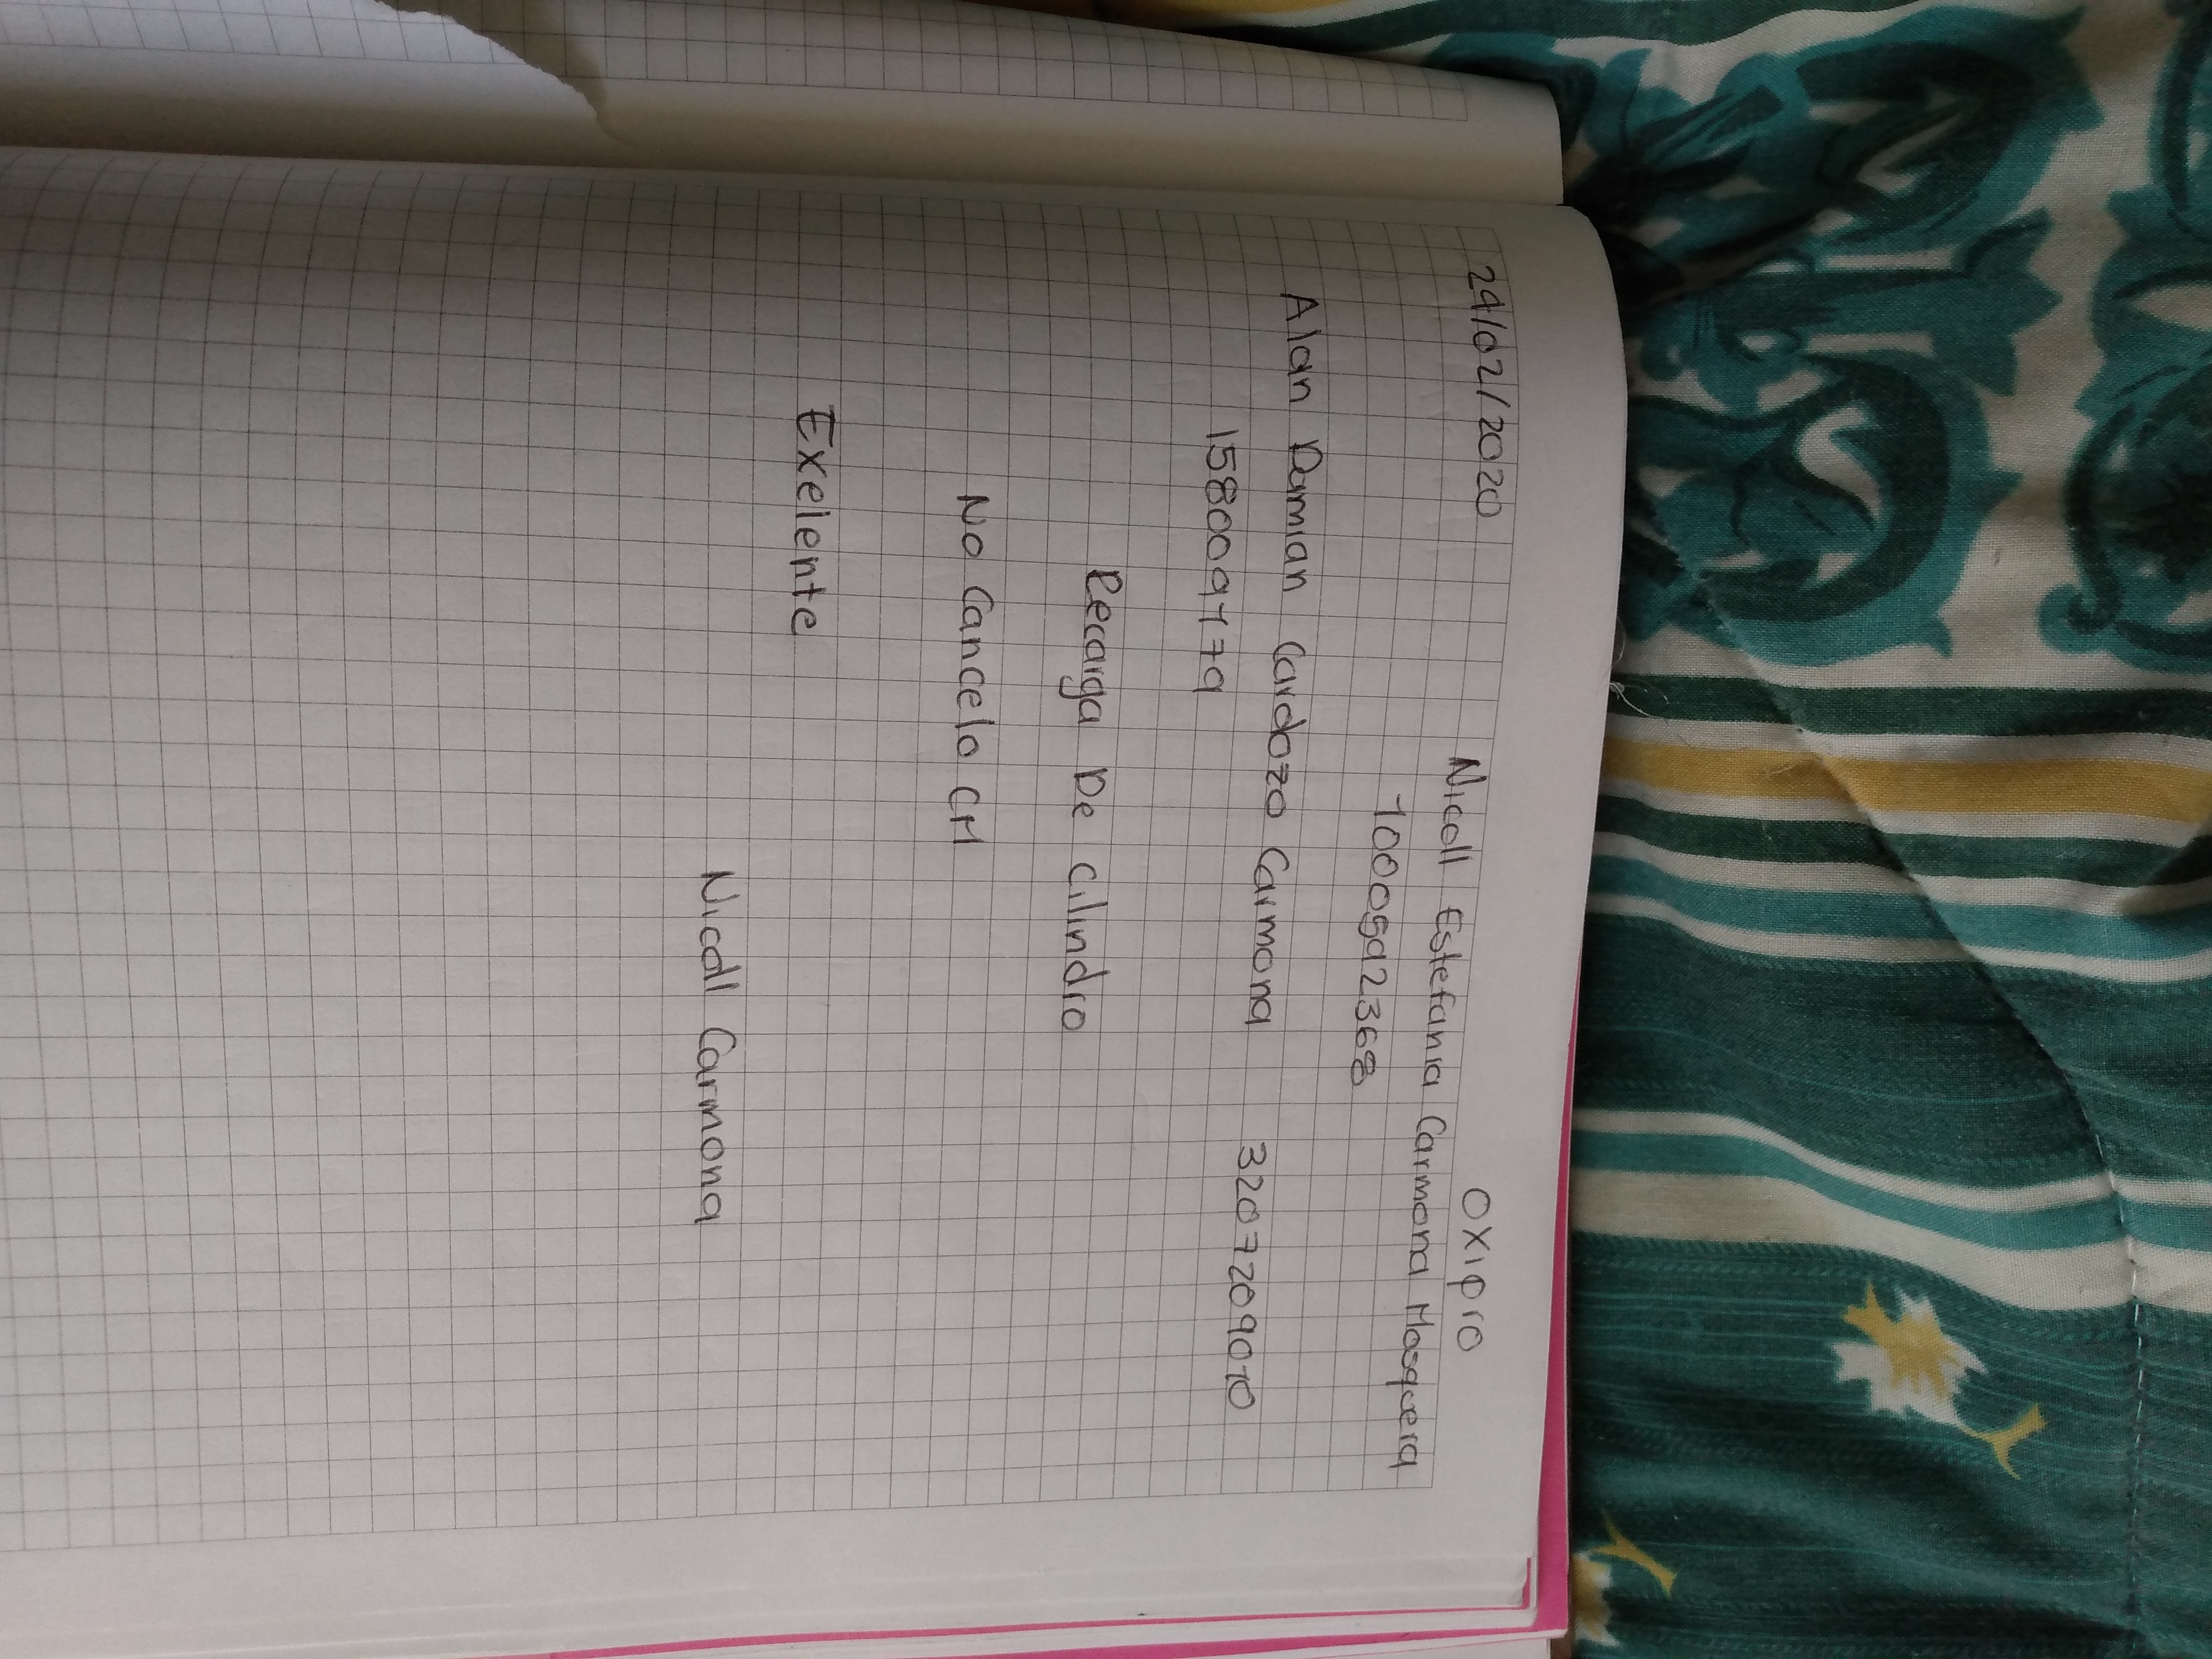 24/02/2020 OXIPro
Nicoll Estefania Carmona Mosquera
1000592368
Alan Damian Cardozo Carmona 3207209010
1580091179
Recarga De cilindro
No Cancelo CM
Exelente
Nicoll Carmona